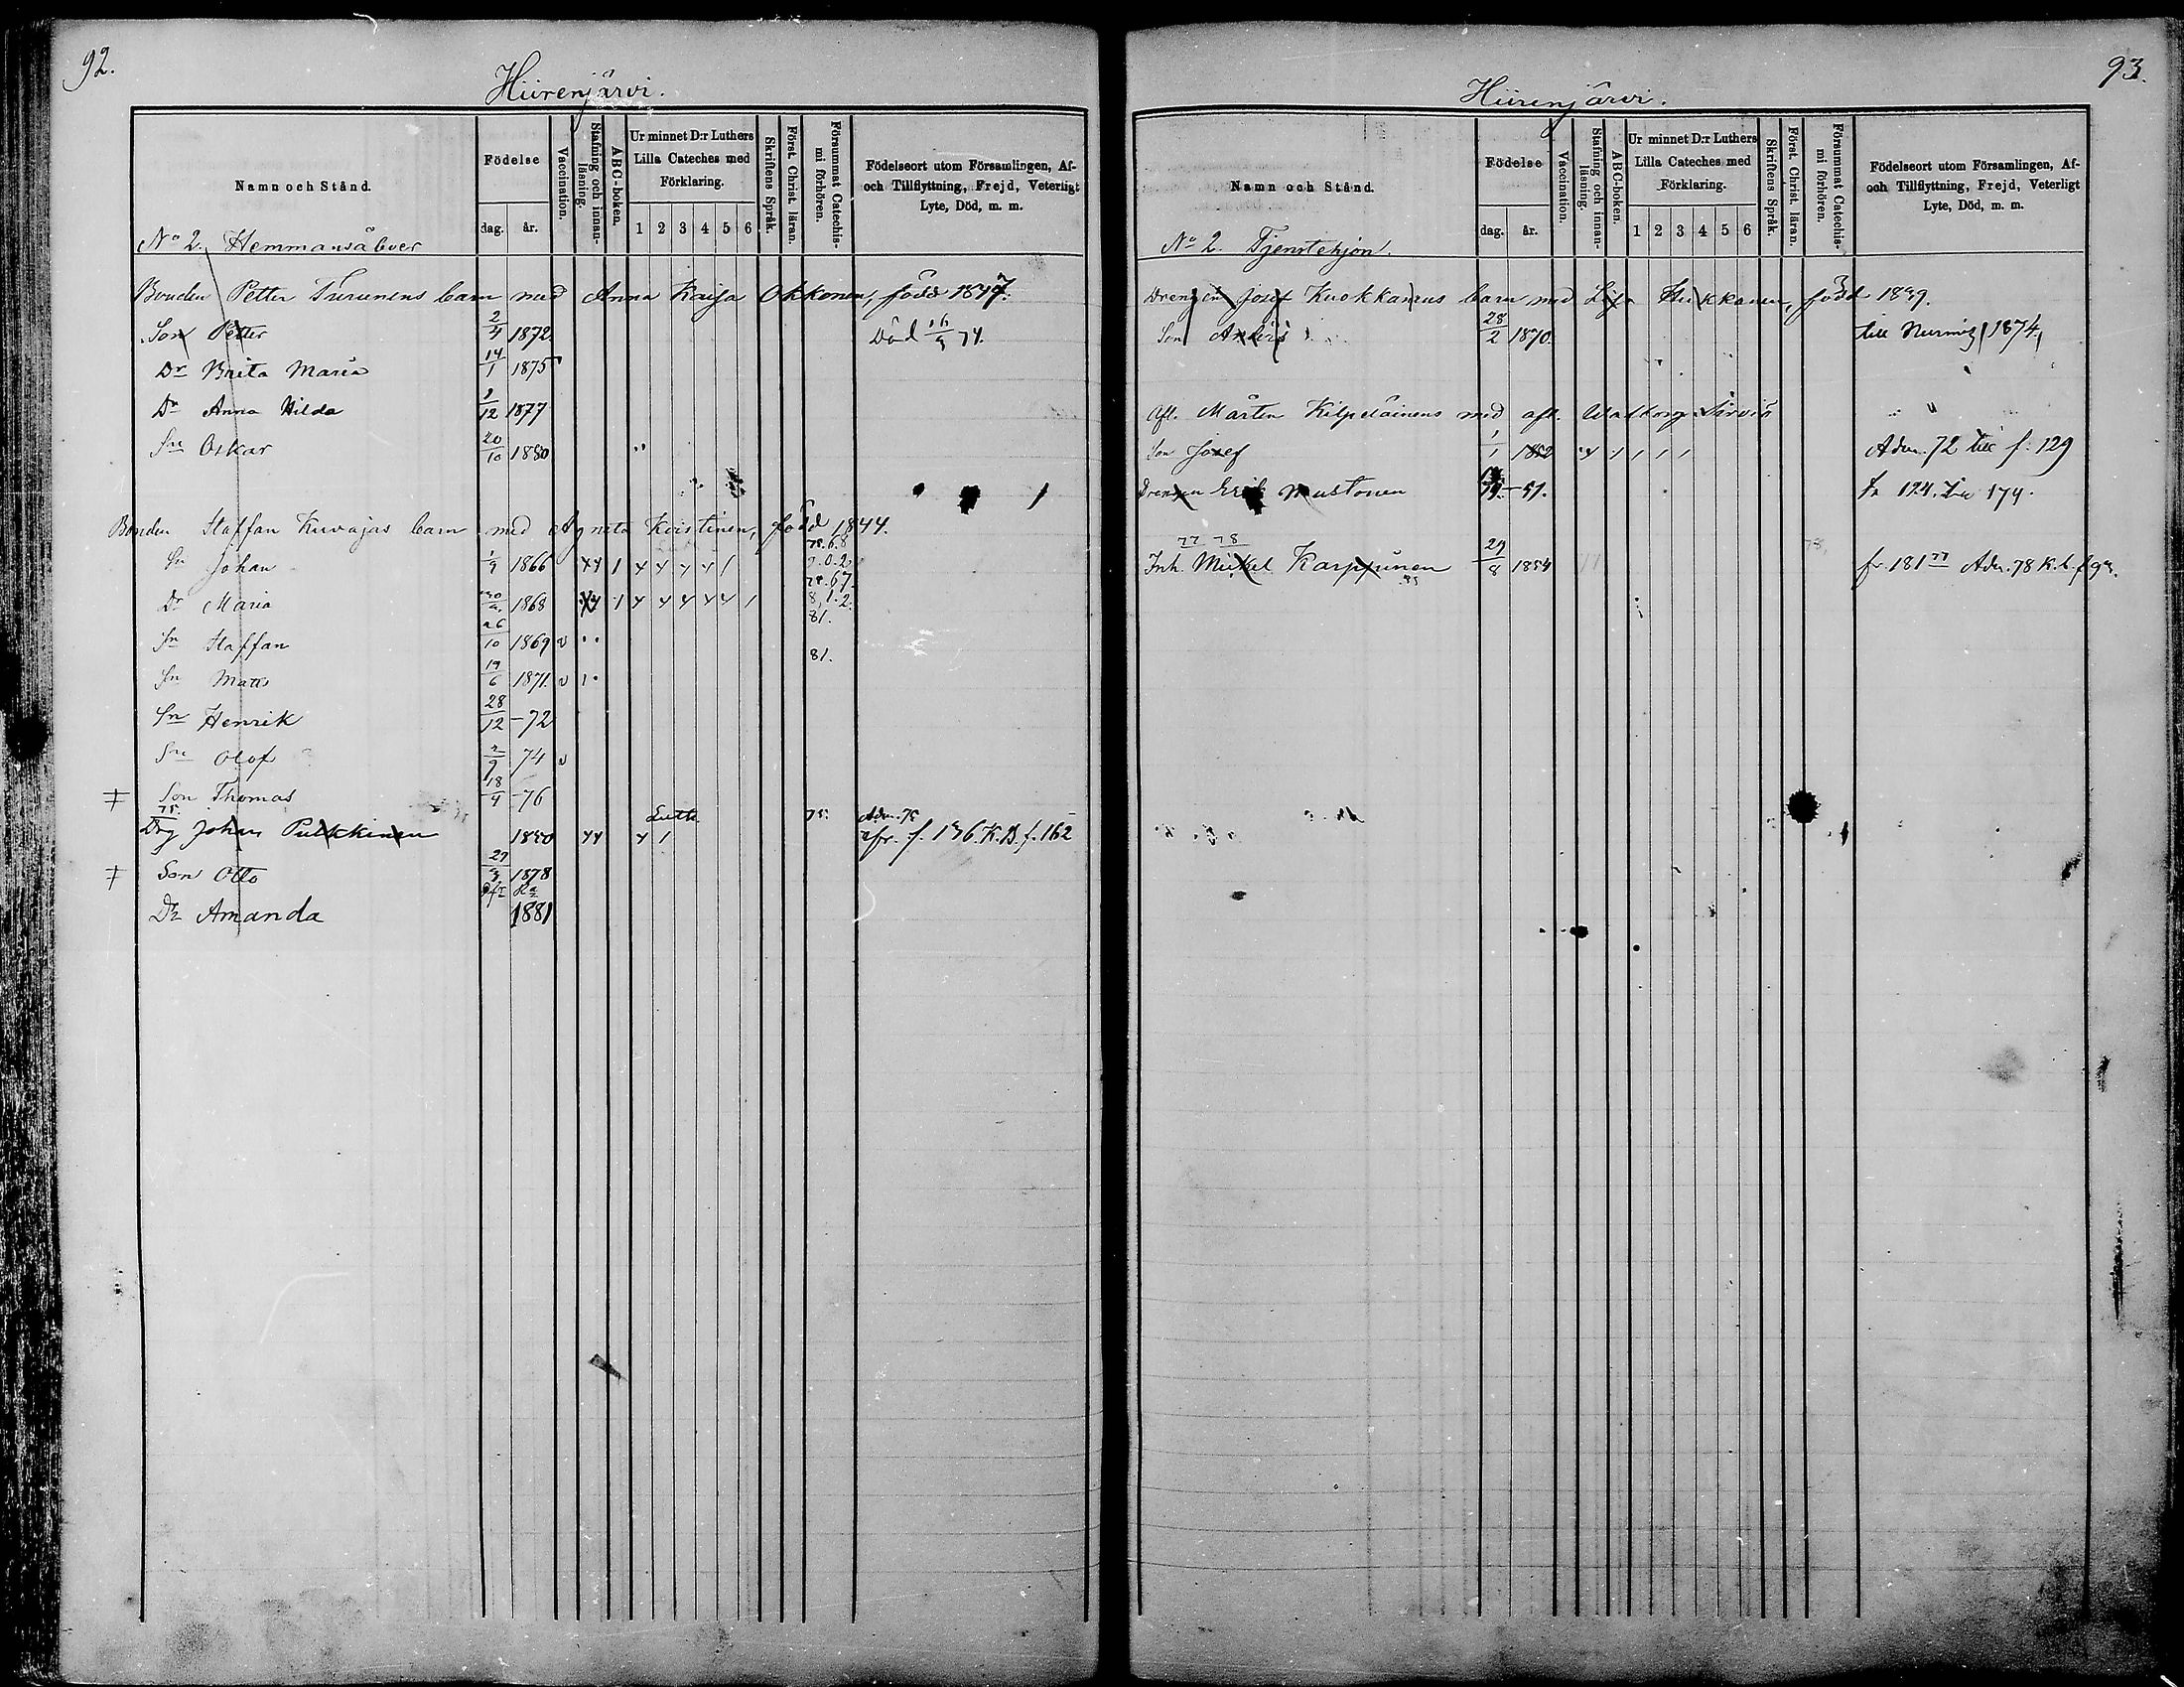 92.
Hiirenjärvi.
Namn och Stånd.
Födelse
dag. år.
Vaccination.
Stafning och innanläsning.
ABC-boken.
Ur minnet D:r Luthers Lilla Cateches med Förklaring.
1 2 3 4 5 6
Skriftens Språk.
Först. Christ. läran.
Försummat Catechismi förhören.
Födelseort utom Församlingen, Af- och Tillflyttning, Frejd, Veterligt Lyte, Död, m. m.
No 2. Hemmansåboer
Bonden Petter Turunens barn med Anna Kaisa Okkonen, född 1847.
Son Petter 2/4 1872. Död 16/9 74.
Dr Brita Maria 14/1 1875
Dr Anna Hilda 9/12 1877
Sn Oskar 20/10 1880
Bonden Staffan Kuvajas barn med Agneta Kristinen, född 1844.
Sn Johan 1/9 1866
Dr Maria 1868
Sn Staffan 26/10 1869 v 81.
Sn Matts 19/6 1871. v 81.
Sn Henrik 28/12 -72
Sn Olof 2/9 74 v
Son Thomas 18/4 -76
Drg Johan Pulkkinen 1850 Lutk. 75. Adm. 75 fr. f. 136. K.B. f. 162
Son Otto 27/3 1878
Dr Amanda 1881
93.
Hiirenjärvi.
Namn och Stånd.
Födelse
dag. år.
Vaccination.
Stafning och innanläsning.
ABC-boken.
Ur minnet D:r Luthers Lilla Cateches med Förklaring.
1 2 3 4 5 6
Skriftens Språk.
Först. Christ. läran.
Försummat Catechismi förhören.
Födelseort utom Församlingen, Af- och Tillflyttning, Frejd, Veterligt Lyte, Död, m. m.
No 2. Tjenstehjon.
Drengen Josef Kuokkanens barn med Lisa Hukkanen, född 1839.
Son Anders 28/2 1870. till Nurmis 1874.
Afl. Mårten Kilpeläinens med afl. Walborg Sirviö
Son Josef 1/1 1852 Adm. 72 till f. 129
Drengen Erik Mustonen -51. fr 124. till 174.
77 78
Inh. Mickel Karppinen 29/8 1854 fr. 181 77 Adm. 78 K.b. f 93.